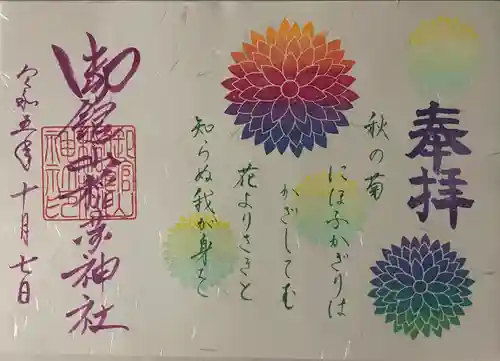 奉拝
秋の菊
にほふかぎりは
かざしてむ
花よりさきと
知らぬ我が身を
御館山稲荷神社
令和五年 十月七日